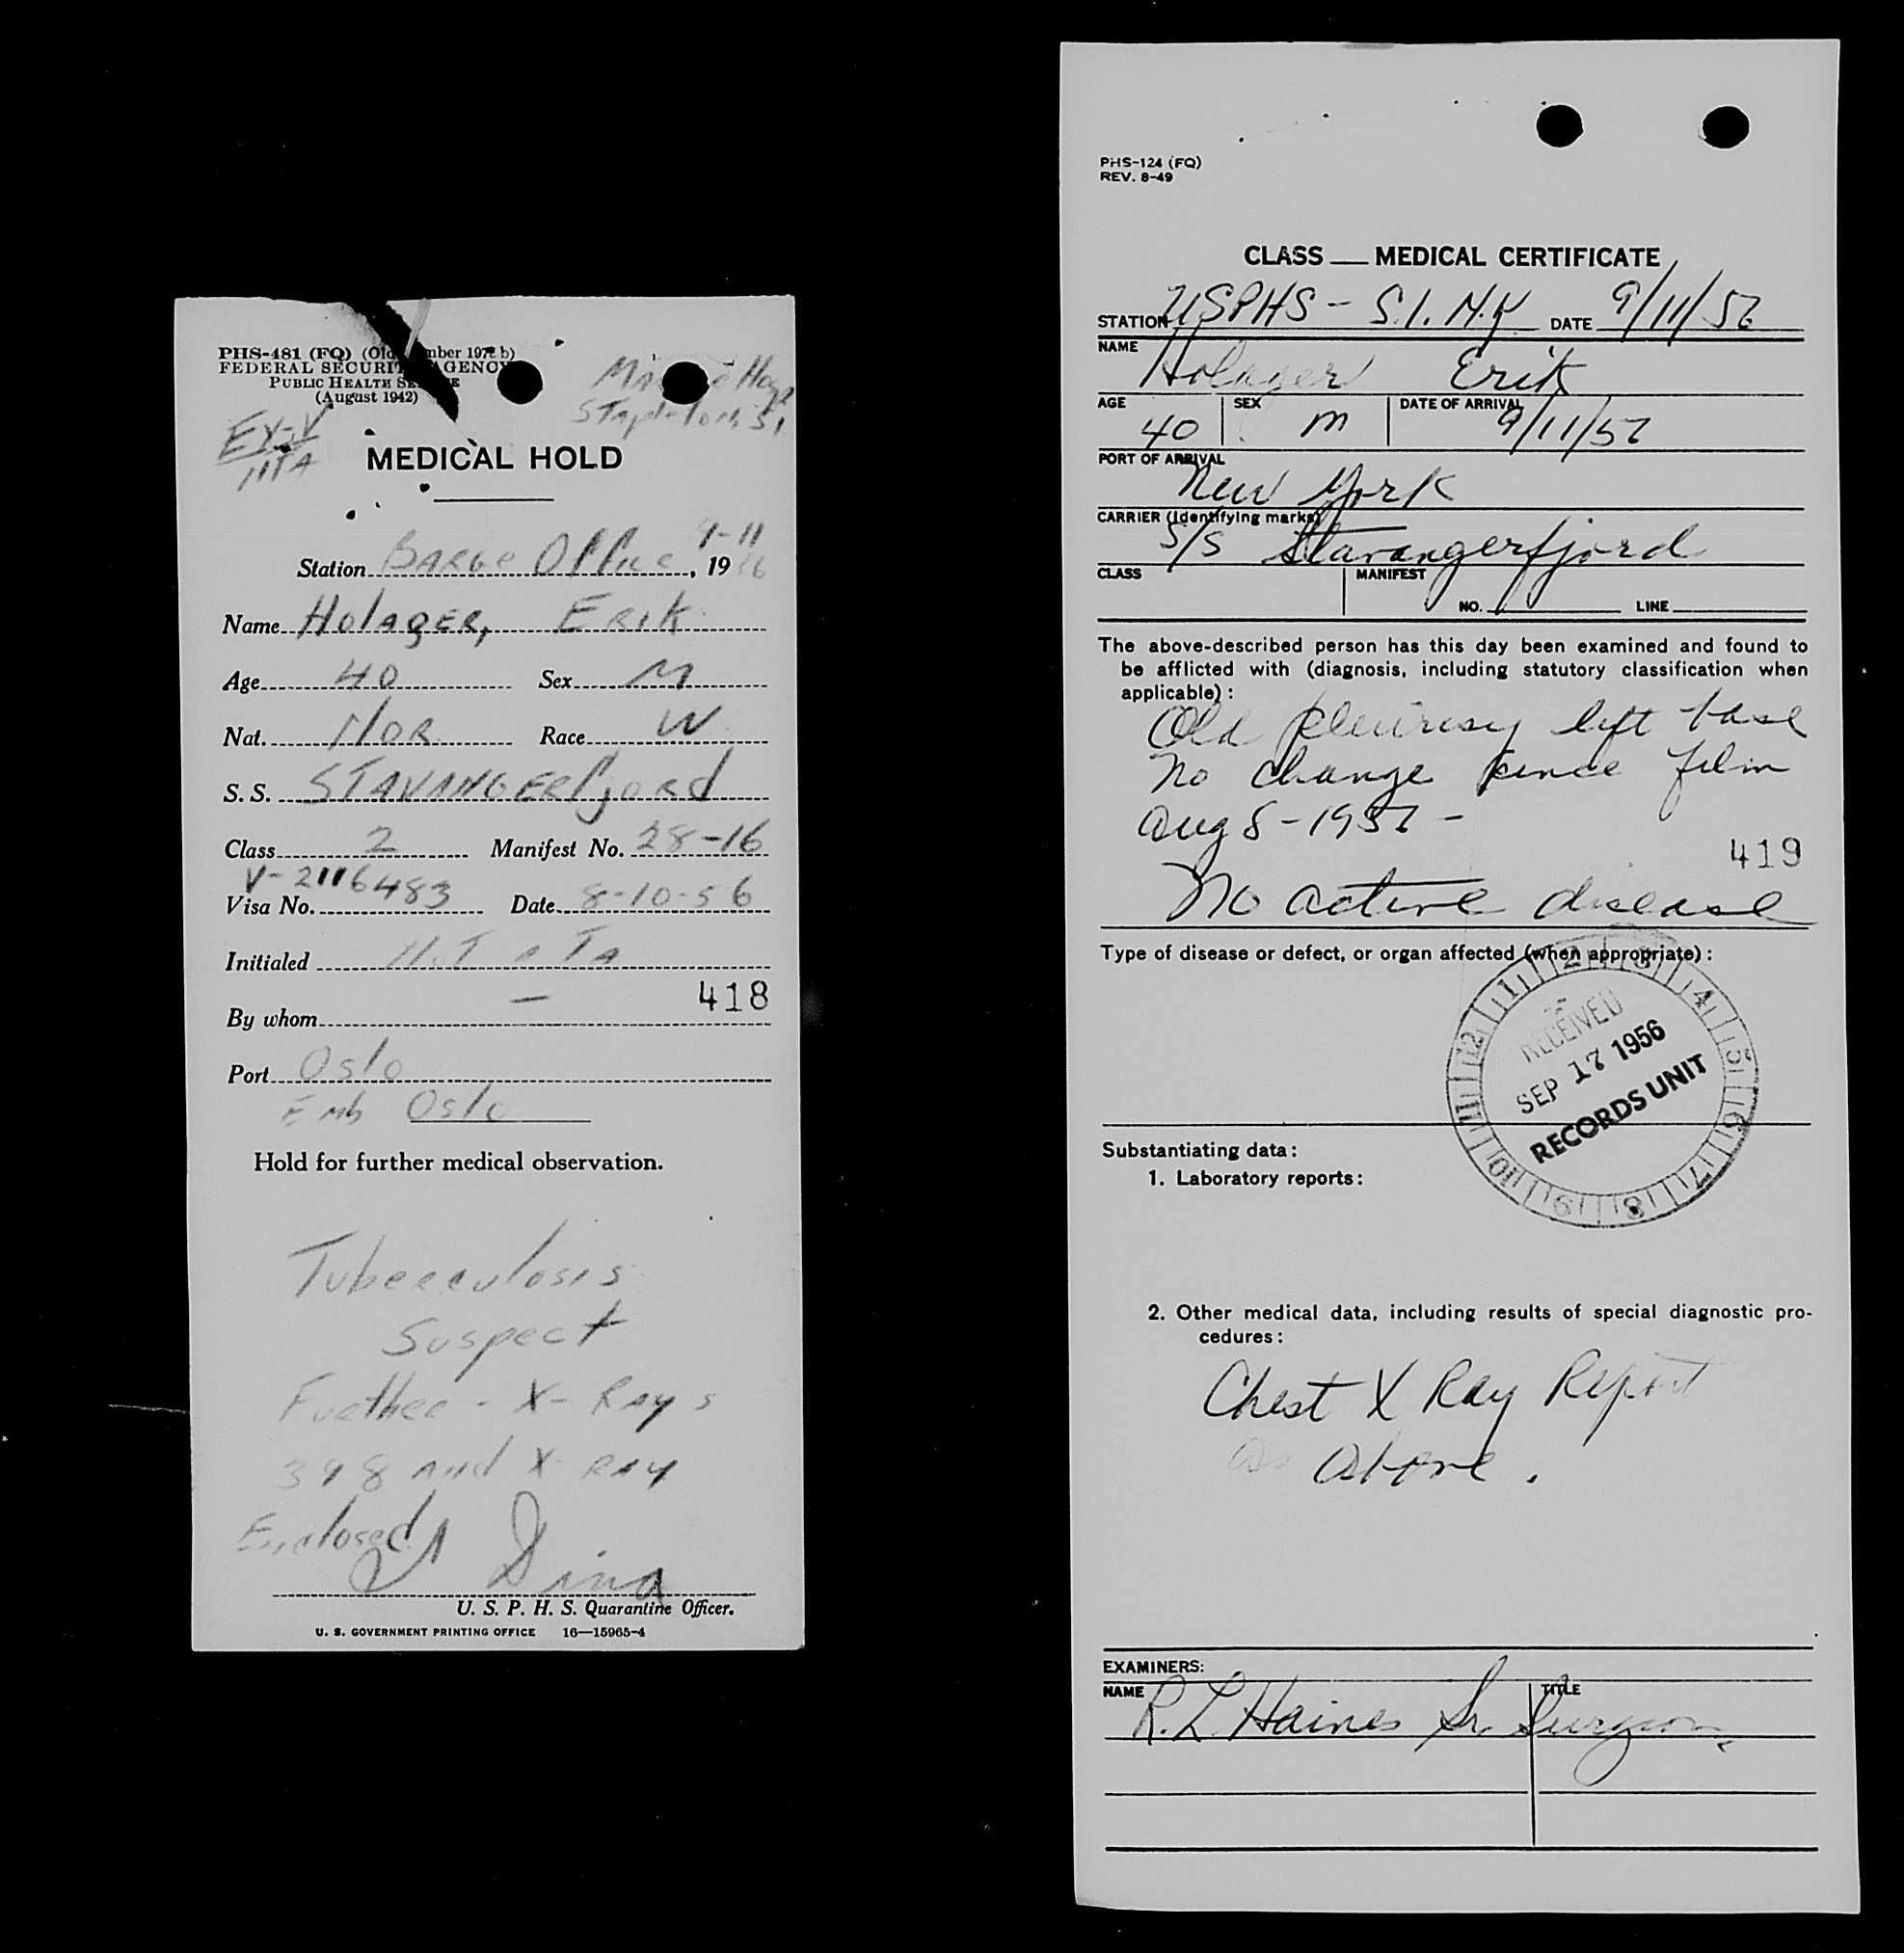 PHS-481 (FQ) (Old mber 1972 b)
FEDERAL SECURIT AGENCY
PUBLIC HEALTH SE E
(August 1942)
Stapleton, SI
MEDICAL HOLD
9-11
Station Barge Office, 19
Name Holager, Erik
Age 40 Sex M
Nat. Nor Race W
S. S. Stavangerfjord
Class 2 Manifest No. 28-16
V-2116483
Visa No. Date 8-10-56
Initialed
418
By whom —
Port Oslo
Emb Oslo
Hold for further medical observation.
Tuberculosis
Suspect
Further - X-Rays
398 and X-Ray
Enclosed
U. S. P. H. S. Quarantine Officer.
U. S. GOVERNMENT PRINTING OFFICE 16—15965-4
PHS-124 (FQ)
REV. 8-49
CLASS MEDICAL CERTIFICATE
STATION USPHS - S.I. N.Y DATE 9/11/56
NAME
Holager Erik
AGE SEX DATE OF ARRIVAL
40 M 9/11/56
PORT OF ARRIVAL
New York
CARRIER (Identifying marks)
S/S Stavangerfjord
CLASS MANIFEST
NO. LINE
The above-described person has this day been examined and found to
be afflicted with (diagnosis, including statutory classification when
applicable):
Old pleurisy left base
No change since film
Aug 8-1956 -
419
No active disease
Type of disease or defect, or organ affected (when appropriate):
1 2 3 4 5 6 7 8 9 10 11 12
RECEIVED
SEP 17 1956
RECORDS UNIT
Substantiating data:
1. Laboratory reports:
2. Other medical data, including results of special diagnostic pro-
cedures:
Chest X Ray Report
as above.
EXAMINERS:
NAME TITLE
R. L. Haines Sr. Surgeon